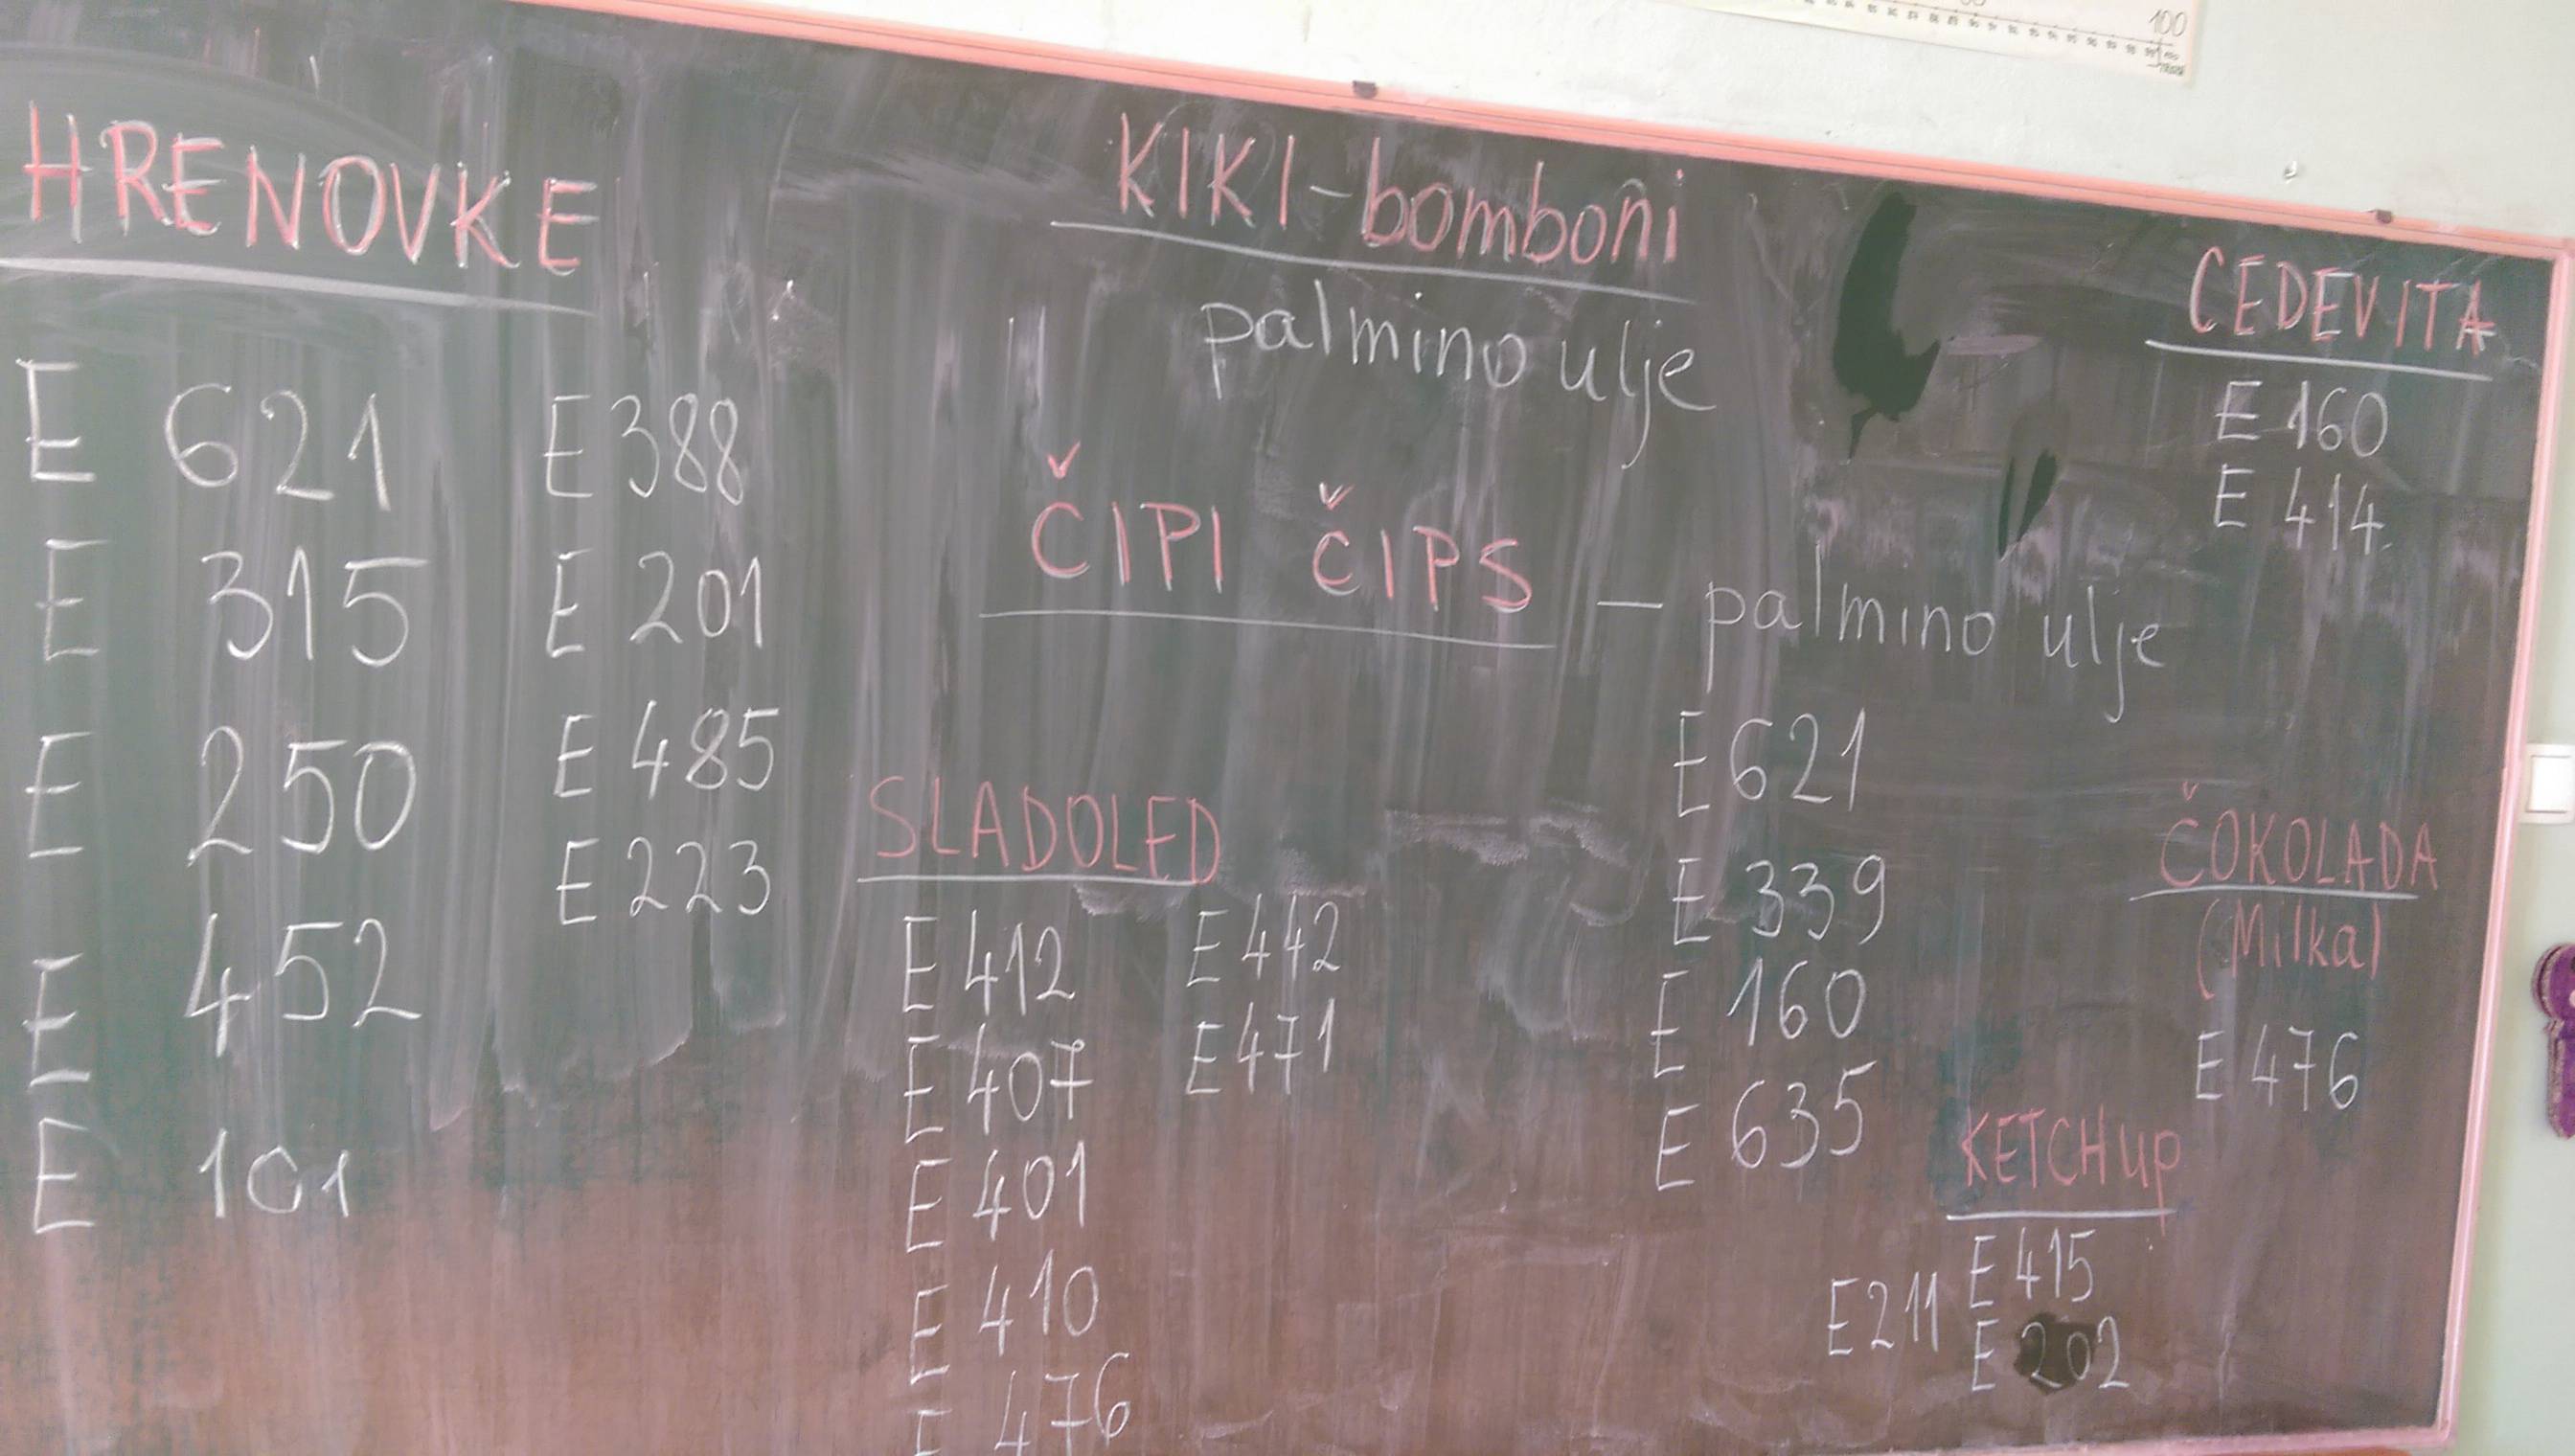 HRENOVKE
E 621
E 315
E 250
E 452
E 101
E 388
E 201
E 485
E 223
KIKI-bomboni
palmino ulje
ČIPI ČIPS — palmino ulje
E 621
E 339
E 160
E 635
SLADOLED
E 412
E 407
E 401
E 410
E 476
E 442
E 471
CEDEVITA
E 160
E 414
ČOKOLADA
(Milka)
E 476
KETCHup
E 415
E 202
E211
100